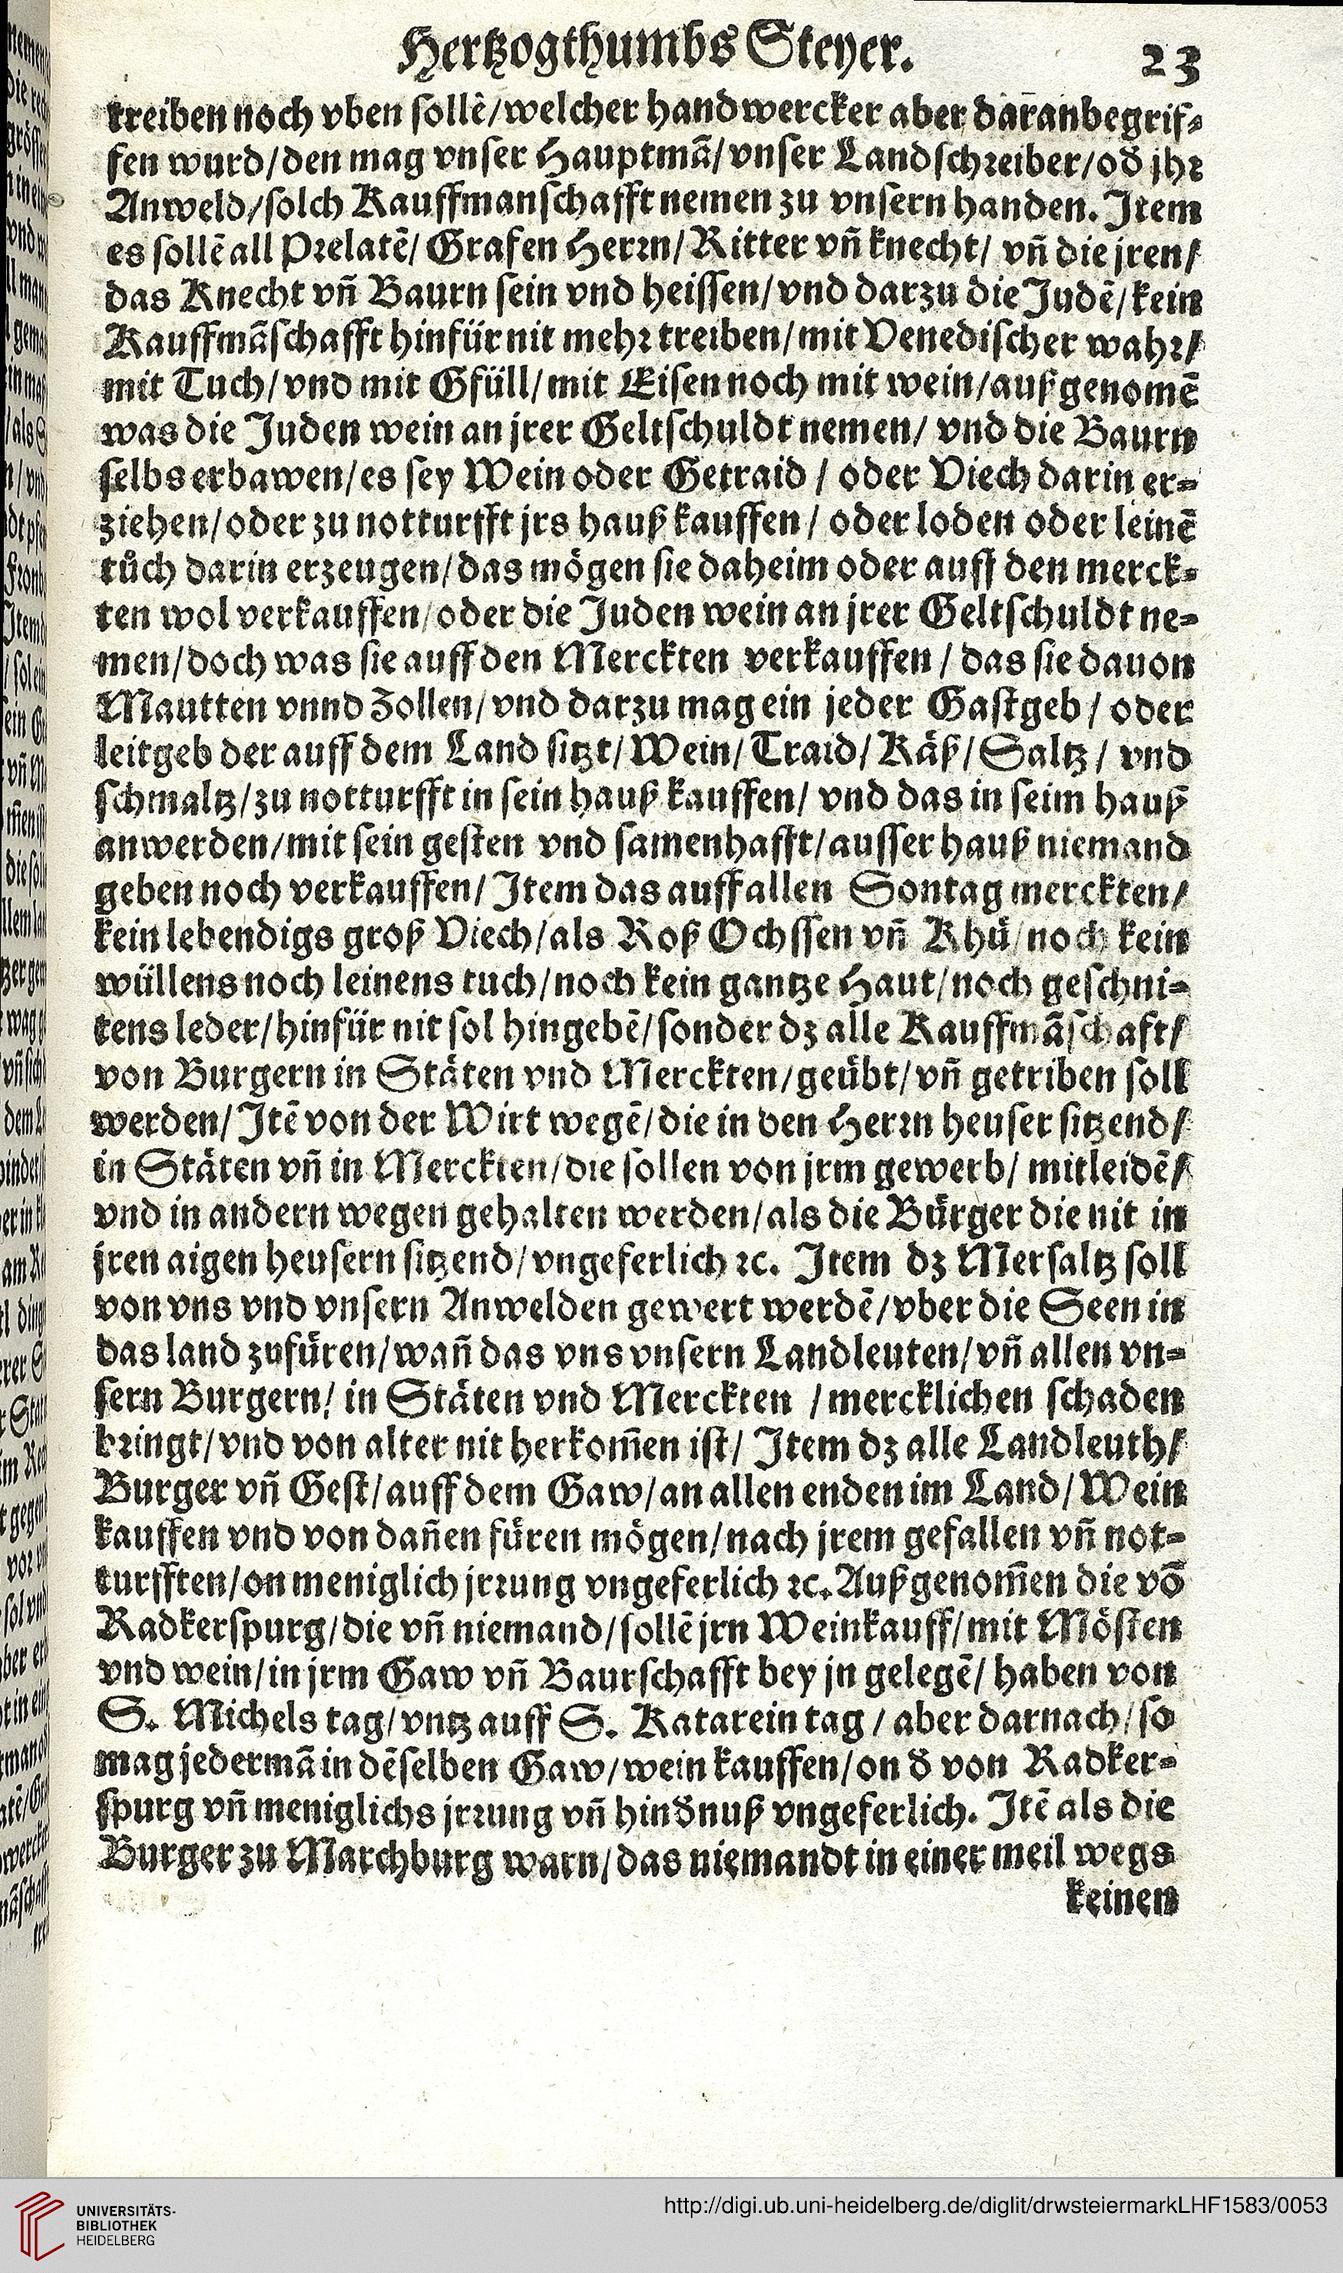 Hertzogthumbs Steyer. 23
treiben noch vben sollẽ/welcher handwercker aber darañbegrif-
fen wurd/den mag vnser Hauptmã/vnser Landschreiber/od̃ jhr
Anweld/solch Kauffmanschafft nemen zu vnsern handen. Item
es sollẽ all Prelatẽ/ Grafen Herrn/Ritter vñ knecht/ vñ die jren/
das Knecht vñ Baurn sein vnd heissen/vnd darzu die Judẽ/kein
Kauffmãschafft hinfür nit mehr treiben/mit Venedischer wahr/
mit Tuch/vnd mit Gfüll/mit Eisen noch mit wein/außgenomẽ
was die Juden wein an jrer Geltschuldt nemen/ vnd die Baurn
selbs erbawen/es sey Wein oder Getraid / oder Viech darin er-
ziehen/oder zu notturfft jrs hauß kauffen / oder loden oder leinẽ
tůch darin erzeugen/das mögen sie daheim oder auff den merck-
ten wol verkauffen/oder die Juden wein an jrer Geltschuldt ne-
men/doch was sie auff den Merckten verkauffen / das sie dauon
Mautten vnnd Zollen/vnd darzu mag ein jeder Gastgeb / oder
leitgeb der auff dem Land sitzt/Wein/Traid/Käß/Saltz / vnd
schmaltz/zu notturfft in sein hauß kauffen/ vnd das in seim hauß
anwerden/mit sein gesten vnd samenhafft/ausser hauß niemand
geben noch verkauffen/ Item das auff allen Sontag merckten/
kein lebendigs groß Viech/als Roß Ochssen vñ Khü/noch kein
wüllens noch leinens tuch/noch kein gantze Haut/noch geschni-
tens leder/hinfür nit sol hingebẽ/sonder dz alle Kauffmãschaft/
von Burgern in Stäten vnd Merckten/geübt/vñ getriben soll
werden/Itẽ von der Wirt wegẽ/die in den Herrn heuser sitzend/
in Stäten vñ in Merckten/die sollen von jrm gewerb/ mitleidẽ/
vnd in andern wegen gehalten werden/als die Bürger die nit in
jren aigen heusern sitzend/vngeferlich ꝛc. Item dz Mersaltz soll
von vns vnd vnsern Anwelden gewert werdẽ/vber die Seen in
das land zufüren/wañ das vns vnsern Landleuten/vñ allen vn-
sern Burgern/ in Stäten vnd Merckten / mercklichen schaden
bringt/vnd von alter nit herkom̃en ist/ Item dz alle Landleuth/
Burger vñ Gest/auff dem Gaw/an allen enden im Land/Wein
kauffen vnd von dañen füren mögen/nach jrem gefallen vñ not-
turfften/on meniglich jrrung vngeferlich ꝛc. Außgenom̃en die võ
Radkerspurg/die vñ niemand/sollẽ jrn Weinkauff/mit Mösten
vnd wein/in jrm Gaw vñ Baurschafft bey jn gelegẽ/ haben von
S. Michels tag/vntz auff S. Katarein tag / aber darnach/so
mag jedermã in dẽselben Gaw/wein kauffen/on d̃ von Radker-
spurg vñ meniglichs jrrung vñ hind̃nuß vngeferlich. Itẽ als die
Burger zu Marchburg warn/das niemandt in einer meil wegs
keinen
UNIVERSITÄTS-
BIBLIOTHEK
HEIDELBERG
http://digi.ub.uni-heidelberg.de/diglit/drwsteiermarkLHF1583/0053